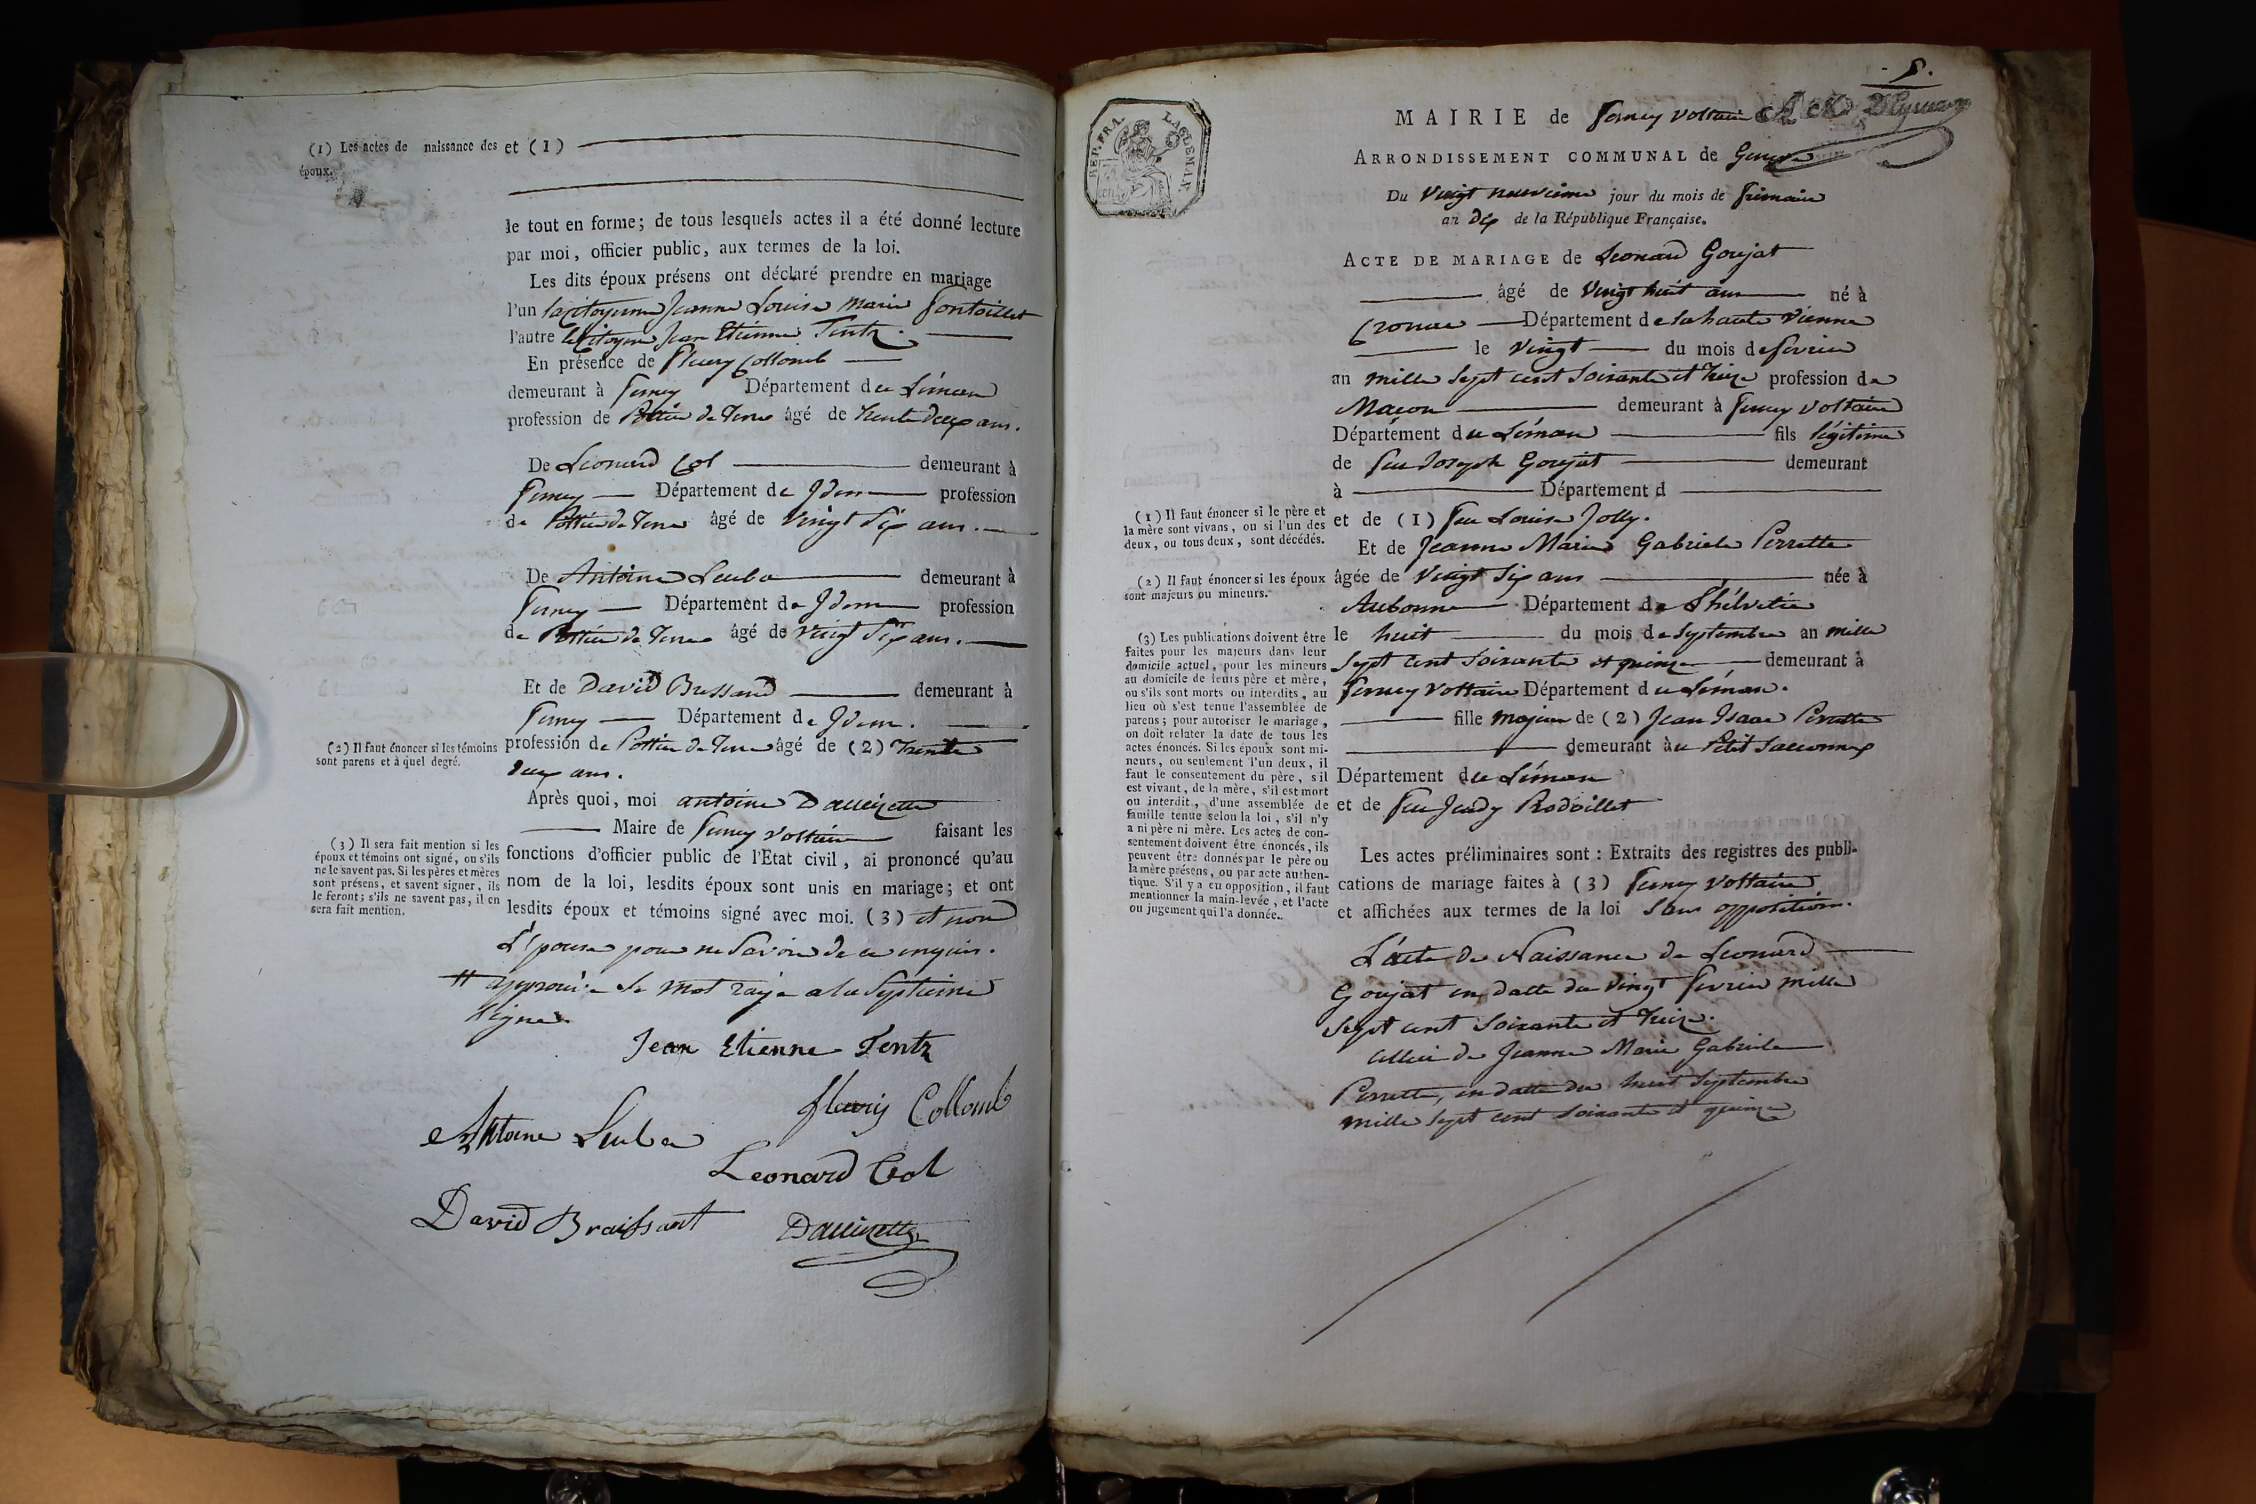 (1) Les actes de naissance des
époux.
et (1)
le tout en forme; de tous lesquels actes il a été donné lecture
par moi, officier public, aux termes de la loi.
Les dits époux présens ont déclaré prendre en mariage
l'un la citoyenne Jeanne Louise Marie Fontoillet
l'autre le Citoyen Jean Etienne Tentz.
En présence de Fleury Collomb
demeurant à Ferney Département du Léman
profession de Pottier de Terre âgé de trente deux ans.
De Leonard Col demeurant à
Ferney Département de Idem profession
de Pottier de Terre âgé de vingt Six ans.
De Antoine Leuba demeurant à
Ferney Département de Idem profession
de Pottier de Terre âgé de vingt Six ans.
Et de David Bressand demeurant à
Ferney Département de Idem.
profession de Pottier de Terre âgé de (2) Trente
deux ans.
(2) Il faut énoncer si les témoins
sont parens et à quel degré.
Après quoi, moi antoine Dallizette
Maire de Ferney Voltaire faisant les
fonctions d'officier public de l'Etat civil, ai prononcé qu'au
nom de la loi, lesdits époux sont unis en mariage; et ont
lesdits époux et témoins signé avec moi. (3) et non
L'épouse pour ne Savoir de ce enquis.
(3) Il sera fait mention si les
époux et témoins ont signé, ou s'ils
ne le savent pas. Si les pères et mères
sont présens, et savent signer, ils
le feront; s'ils ne savent pas, il en
sera fait mention.
approuvé Le mot rayé a la Septieme
Ligne.
Jean Etienne Tentz
fleury Collomb
Antoine Leuba
Leonard Col
David Braissant
REP. FRA.
MAIRIE de Ferney Voltaire
ARRONDISSEMENT COMMUNAL de Geneve
Du vingt neuvieme jour du mois de frimaire
an dix de la République Française.
ACTE DE MARIAGE de Leonard Goujat
âgé de Vingt huit ans né à
Département de la haute Vienne
le Vingt du mois de fevrier
an mille Sept cent Soixante et Treize profession de
Maçon demeurant à Ferney Voltaire
Département du Léman fils légitime
de feu Joseph Goujat demeurant
à Département d
et de (1) feu Louise Jolly.
Et de Jeanne Marie Gabriele Perrette
âgée de Vingt Six ans née à
Aubonne Département de L'hélvetie
le huit du mois de Septembre an mille
Sept cent Soixante et quinze demeurant à
Ferney Voltaire Département du Léman.
fille majeure de (2) Jean Isaac Perrette
demeurant au Petit Sacconnex
Département du Léman
et de feu Judy Rodoillet
(1) Il faut énoncer si le père et
la mère sont vivans, ou si l'un des
deux, ou tous deux, sont décédés.
(2) Il faut énoncer si les époux
sont majeurs ou mineurs.
(3) Les publications doivent être
faites pour les majeurs dans leur
domicile actuel, pour les mineurs
au domicile de leurs père et mère,
ou s'ils sont morts ou interdits, au
lieu où s'est tenue l'assemblée de
parens; pour autoriser le mariage,
on doit relater la date de tous les
actes énoncés. Si les époux sont mi-
neurs, ou seulement l'un deux, il
faut le consentement du père, s'il
est vivant, de la mère, s'il est mort
ou interdit, d'une assemblée de
famille tenue selon la loi, s'il n'y
a ni père ni mère. Les actes de con-
sentement doivent être énoncés, ils
peuvent être donnés par le père ou
la mère présens, ou par acte authen-
tique. S'il y a eu opposition, il faut
mentionner la main-levée, et l'acte
ou jugement qui l'a donnée.
Les actes préliminaires sont : Extraits des registres des publi-
cations de mariage faites à (3) Ferney Voltaire
et affichées aux termes de la loi Sans opposition.
L'acte de Naissance de Leonard
Goujat en datte du Vingt fevrier mille
Sept cent Soixante et Treize.
Celui de Jeanne Marie Gabriele
Perrette, en datte du huit Septembre
mille Sept cent Soixante et quinze